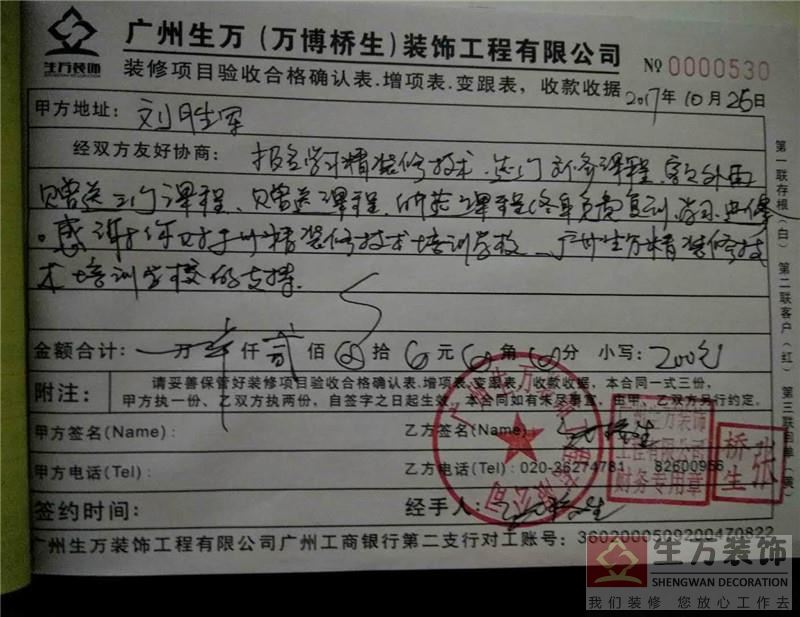 生万装饰
广州生万(万博桥生)装饰工程有限公司
装修项目验收合格确认表.增项表.变跟表，收款收据
№ 0000530
2017年10月25日
甲方地址： 刘胜军
经双方友好协商： 报名学习精装修技术
贈送 课程、贈送课程、 课程终身免费复训、学习
。感谢你对广州精装修技术培训学校、广州生万精装修技
术培训学校的支持.
金额合计： 万 仟 贰 佰 拾 元 角 分 小写： 200元
附注：
请妥善保管好装修项目验收合格确认表.增项表.变跟表.收款收据，本合同一式三份，
甲方执一份、乙双方执两份，自签字之日起生效。本合同如有未尽事宜，由甲、乙双方另行约定。
甲方签名(Name)：
乙方签名(Name)：
甲方电话(Tel)：
乙方电话(Tel)：020-36274781 82600966
签约时间：
经手人：
广州生万装饰工程有限公司广州工商银行第二支行对工账号：3602000509200470822
第一联存根(白) 第二联客户(红) 第三联回单(黄)
广州生万装饰
工程有限公司
财务专用章
张桥生
生万装饰
SHENGWAN DECORATION
我们装修 您放心工作去